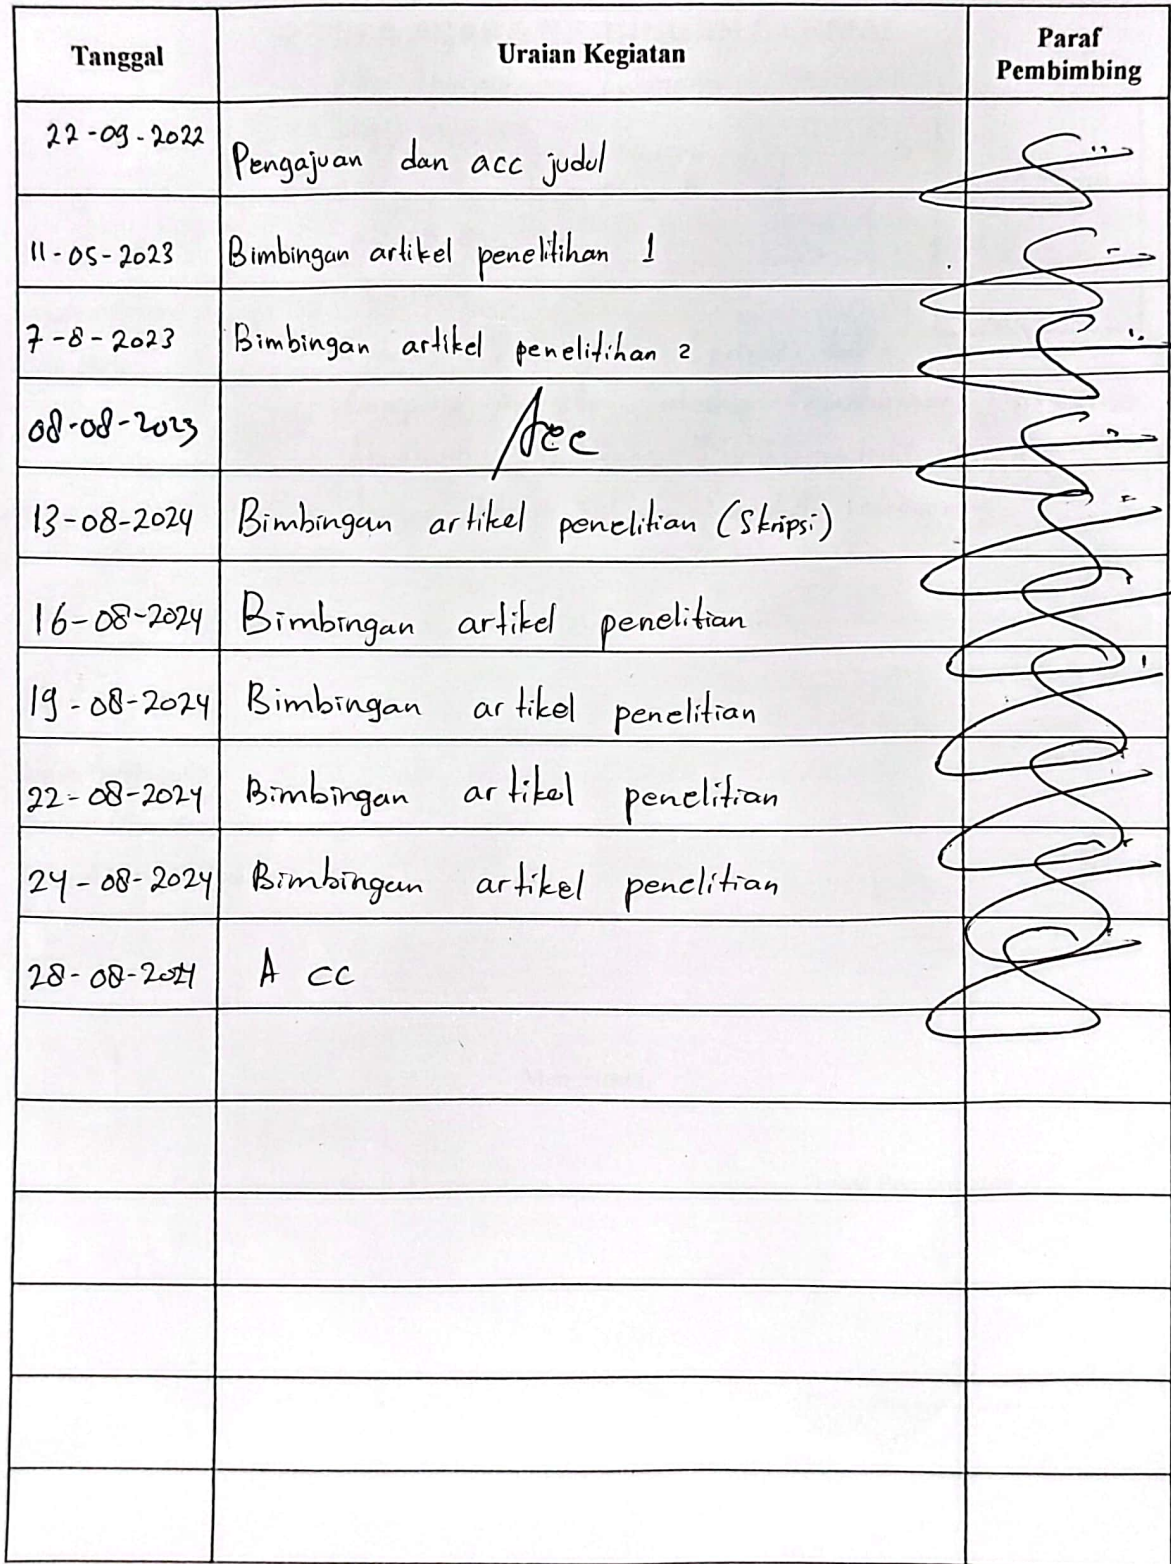 Tanggal Uraian Kegiatan Paraf Pembimbing
22-09-2022 Pengajuan dan acc judul
11-05-2023 Bimbingan artikel penelitihan 1
7-8-2023 Bimbingan artikel penelitihan 2
08-08-2023 Acc
13-08-2024 Bimbingan artikel penelitian (Skripsi)
16-08-2024 Bimbingan artikel penelitian
19-08-2024 Bimbingan artikel penelitian
22-08-2024 Bimbingan artikel penelitian
24-08-2024 Bimbingan artikel penelitian
28-08-2024 A cc